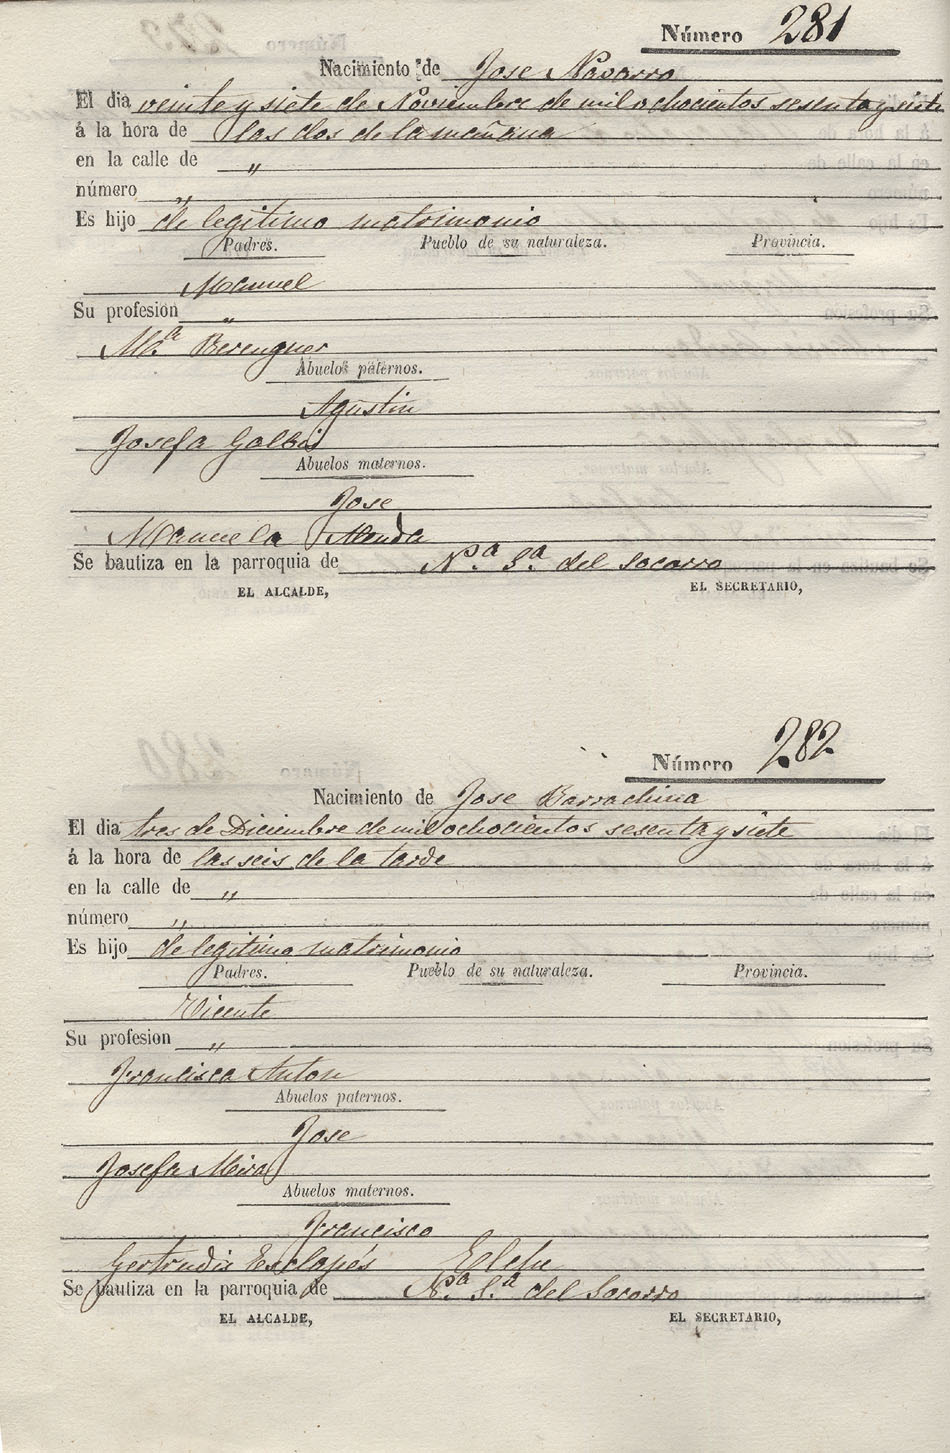 Número 281
Nacimiento de Jose Navarro
El dia veinte y siete de Noviembre de mil ochocientos sesenta y siete
á la hora de las dos de la mañana
en la calle de "
número "
Es hijo de legitimo matrimonio
Padres. Pueblo de su naturaleza. Provincia.
Manuel
Su profesion "
Mª. Berenguer
Abuelos paternos.
Agustin
Josefa Galbis
Abuelos maternos.
Jose
Manuela
Se bautiza en la parroquia de Nª. Sª. del Socorro
EL ALCALDE, EL SECRETARIO,
Número 282
Nacimiento de Jose Barrachina
El dia tres de Diciembre de mil ochocientos sesenta y siete
á la hora de las seis de la tarde
en la calle de "
número "
Es hijo de legitimo matrimonio
Padres. Pueblo de su naturaleza. Provincia.
Vicente
Su profesion "
Francisca Anton
Abuelos paternos.
Jose
Josefa Mira
Abuelos maternos.
Francisco
Gertrudis Esclapés Elche
Se bautiza en la parroquia de Nª. Sª. del Socorro
EL ALCALDE, EL SECRETARIO,